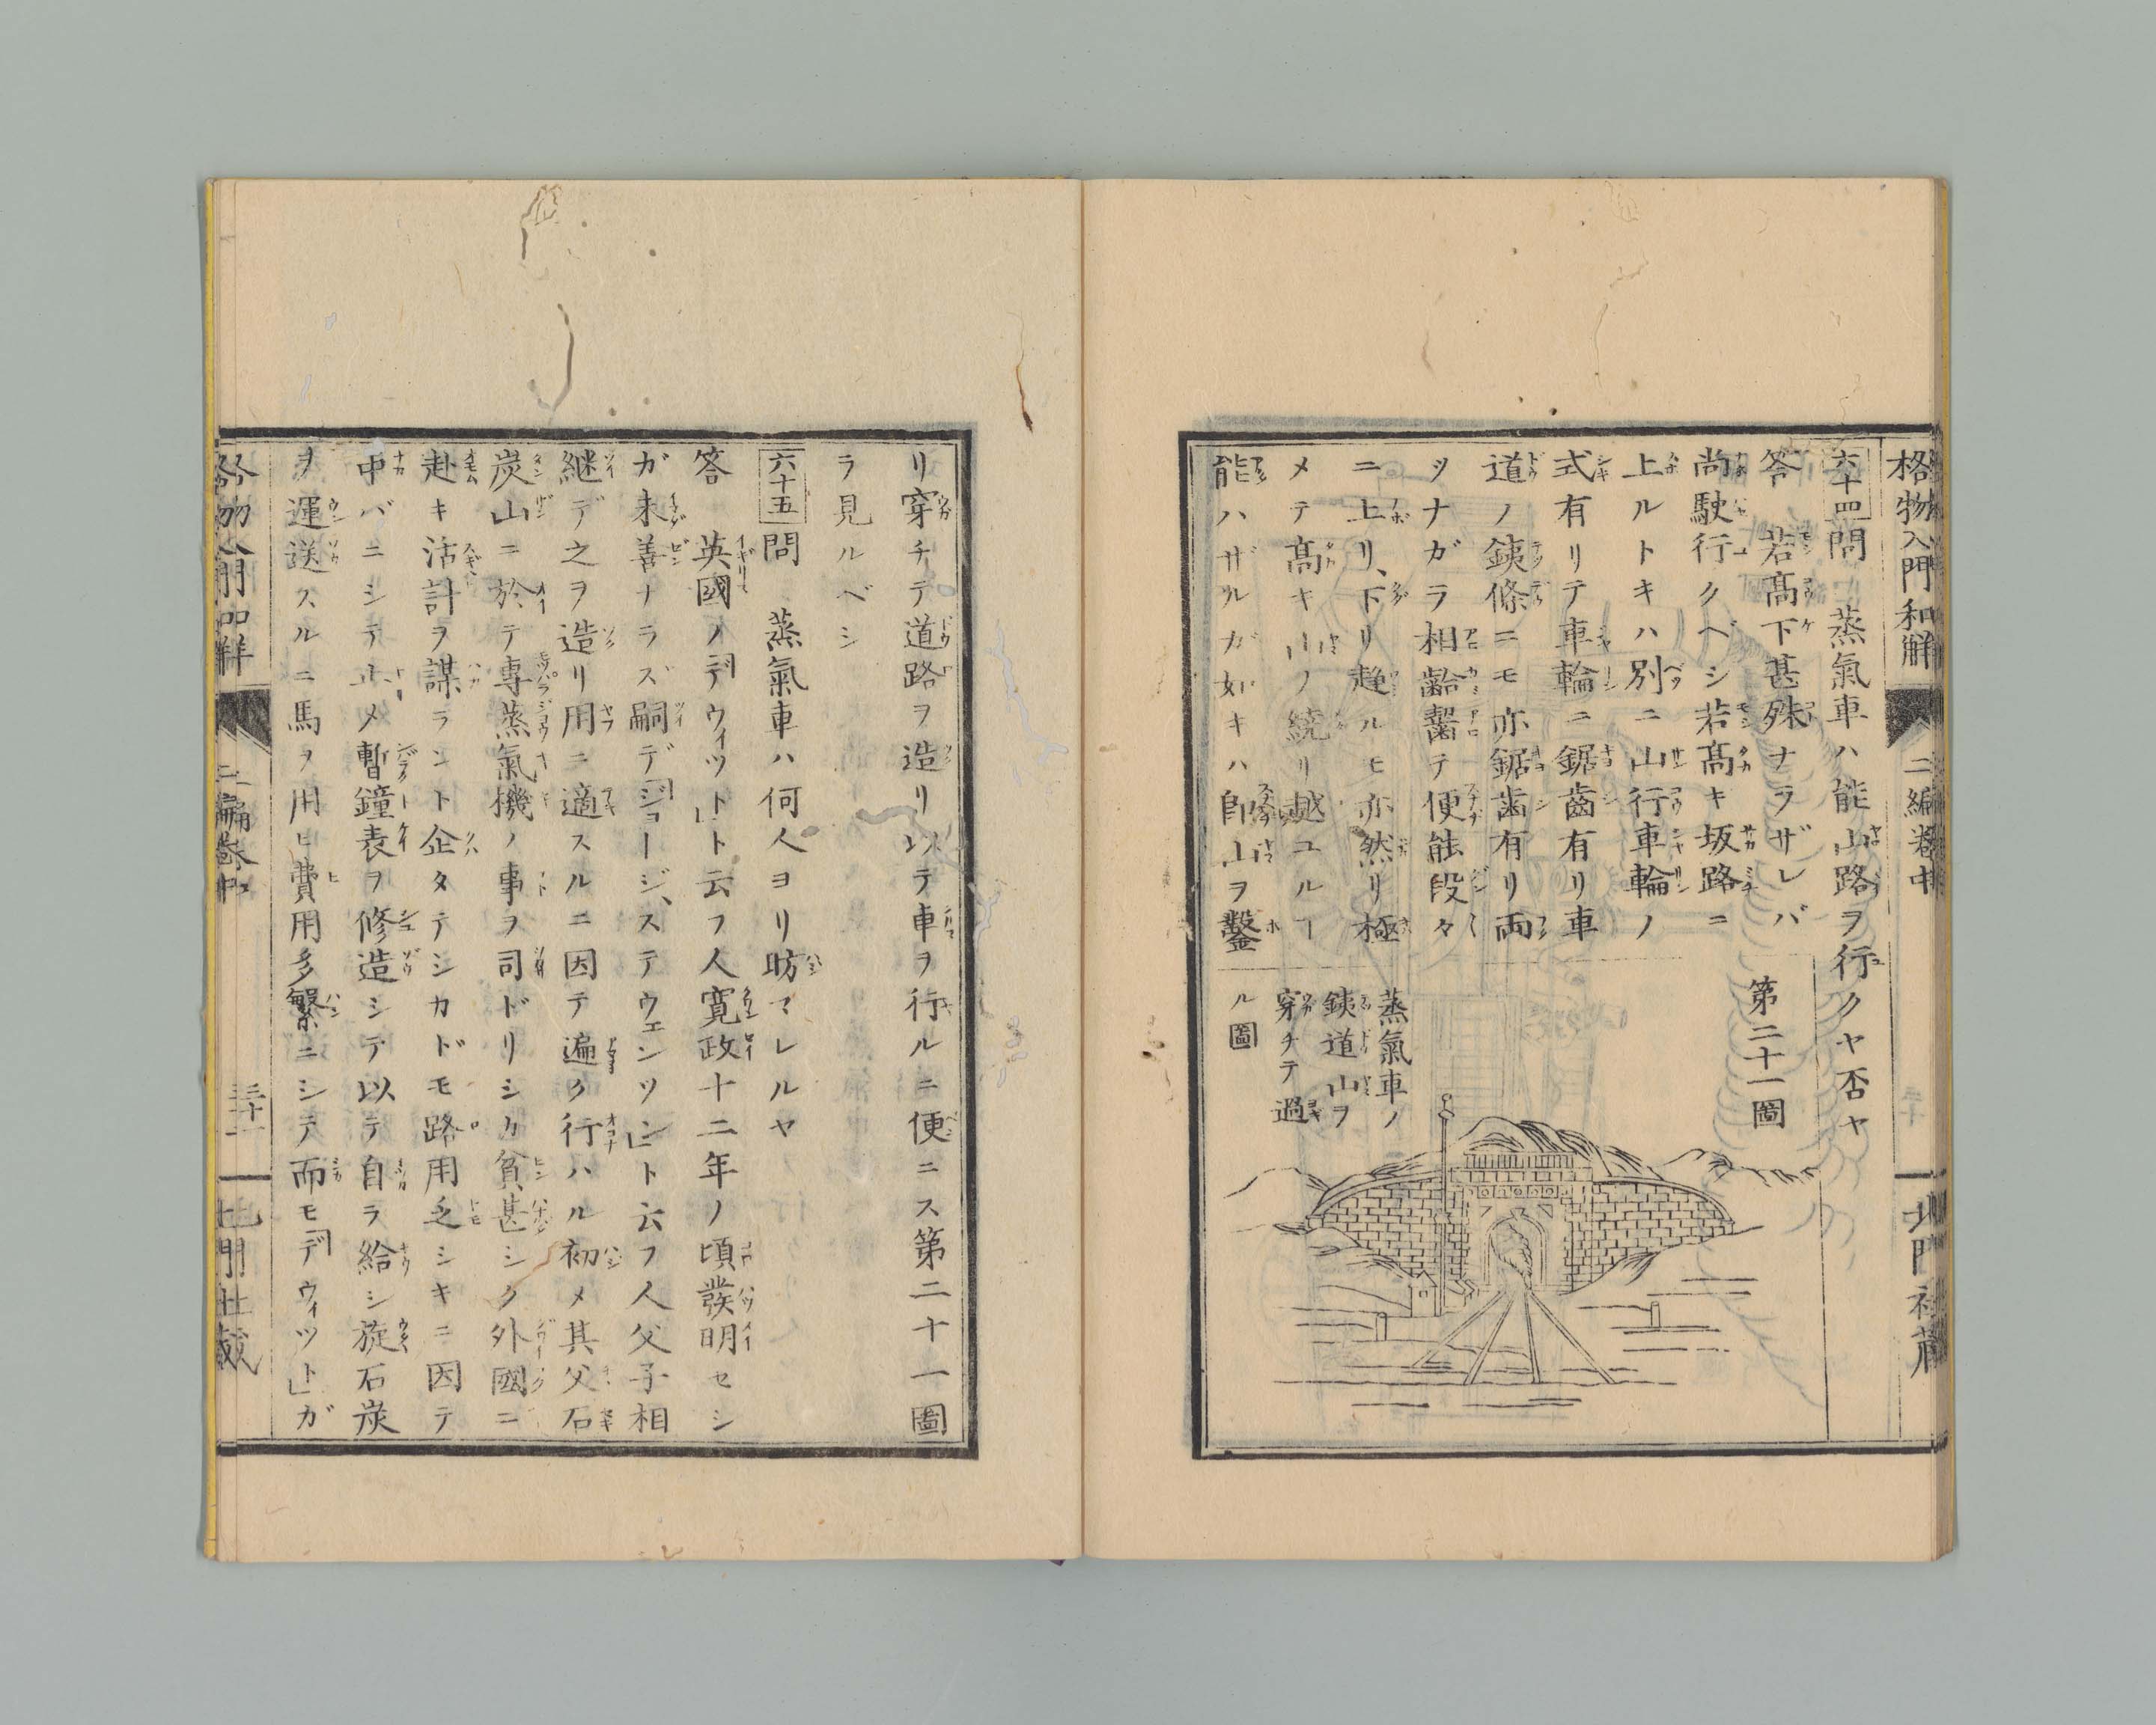 格物入門和解 二編卷中 北門社蔵
六十四問 蒸氣車ハ能山路ヲ行クヤ否ヤ
答 若高下甚殊ナラザレバ
尚駛行クベシ若髙キ坂路ニ
上ルトキハ別ニ山行車輪ノ
式有リテ車輪ニ鋸齒有リ車
道ノ銕條ニモ亦鋸歯有リ両
ツナガラ相齡齧テ便能段々
ニ上リ、下リ趋ルモ亦然リ極
メテ髙キ山ノ繞リ越ユルヿ
能ハザルガ如キハ卽山ヲ鑿
第二十一圖
蒸氣車ノ
銕道山ヲ
穿チテ過
ル圖
リ穿チテ道路ヲ造リ以テ車ヲ行ルニ便ニス第二十一圖
ラ見ルベシ
六十五問 蒸氣車ハ何人ヨリ昉マレルヤ
答 英國ノ「デウィット」ト云フ人寛政十二年ノ頃發明セシ
ガ未善ナラズ嗣デ「ジョージ、ステウェンソン」ト云フ人父子相
継デ之ヲ造リ用ニ適スルニ因テ遍ク行ハル初メ其父石
炭山ニ於テ専蒸氣機ノ事ヲ司ドリシカ貧甚シク外國ニ
赴キ活計ヲ謀ラント企タテシカドモ路用乏シキニ因テ
中バニシテ止メ暫鐘表ヲ修造シテ以テ自ラ給シ旋石炭
ヲ運送スルニ馬ヲ用ヒ費用多繋ニシテ而モ「デウィット」ガ
格物入門和解 二編卷中 三十一 北門社蔵